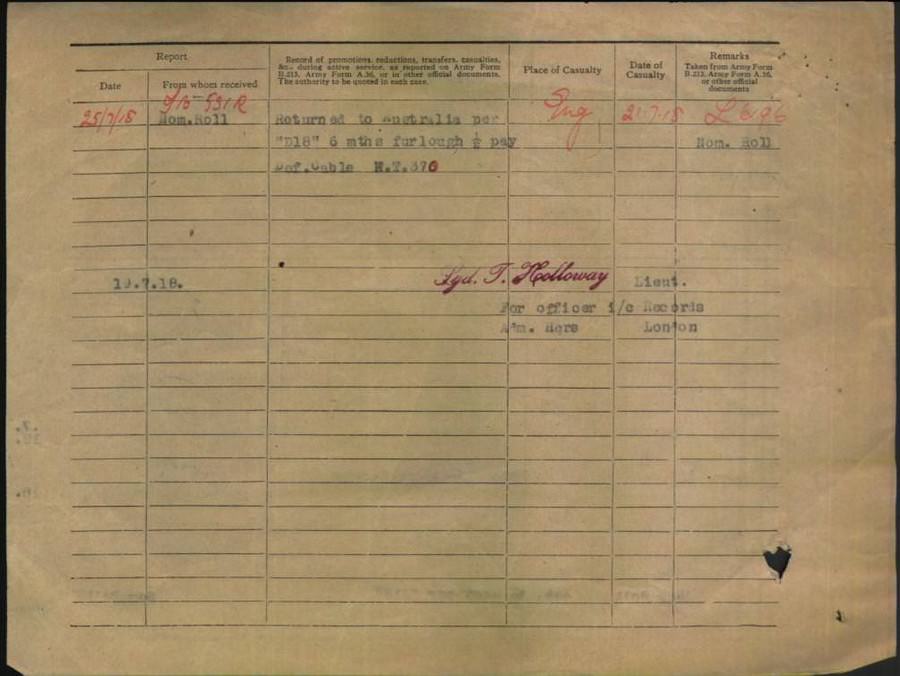 Report
Date
From whom received
Record of promotions, reductions, transfers, casualties,
&c., during active service, as reported on Army Form
B.213, Army Form A.36, or in other official documents.
The authority to be quoted in each case.
Place of Casualty
Date of
Casualty
Remarks
Taken from Army Form
B.213, Army Form A.36,
or other official
documents
25/7/18
Nom.Roll
Returned to Australia per
Eng
21.7.18
"D18" 6 mths furlough ½ pay
Nom. Roll
Def.Cable
19.7.18.
Sgd. T. Holloway
Lieut.
For officer i/c Records
Adm. Hqrs
London